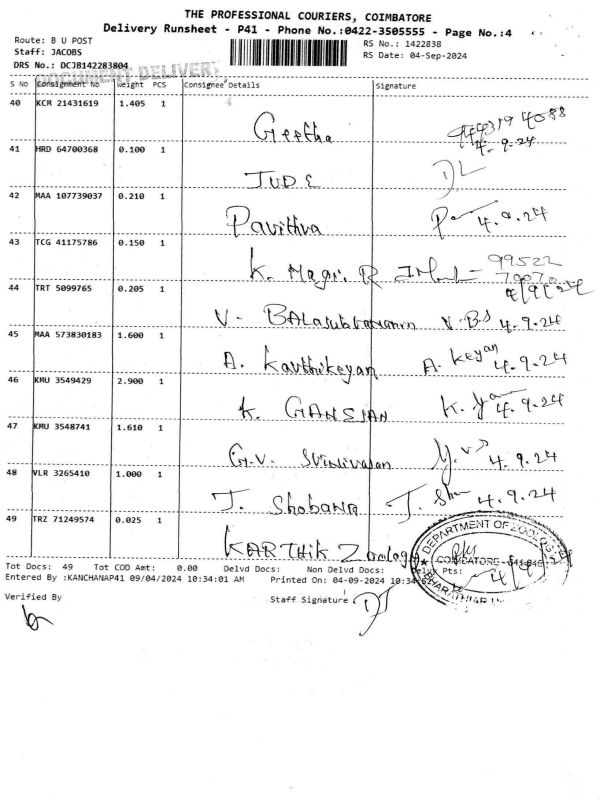 THE PROFESSIONAL COURIERS, COIMBATORE
Delivery Runsheet - P41 - Phone No.:0422-3505555 - Page No.:4
Route: B U POST
RS No.: 1422838
Staff: JACOBS
RS Date: 04-Sep-2024
DRS No.: DCJB142283804
DOCUMENT DELIVERY
S No Consignment No Weight PCS Consignee Details Signature
40 KCM 21431619 1.405 1 Geetha 4.9.24
41 HRD 64700368 0.100 1 JUDE
42 MAA 107739037 0.210 1 Pavithra 4.9.24
43 TCG 41175786 0.150 1 K. R 99522
44 TRT 5099765 0.205 1 V. 4.9.24
45 MAA 573830183 1.600 1 A. Karthikeyan A. Keyan 4.9.24
46 KMU 3549429 2.900 1 K. GANESAN K. 4.9.24
47 KMU 3548741 1.610 1 G.V. Srinivasan 4.9.24
48 VLR 3265410 1.000 1 J. Shobana J. Sho 4.9.24
49 TRZ 71249574 0.025 1 KARTHIK Zoology
DEPARTMENT OF ZOOLOGY
COIMBATORE
Tot Docs: 49 Tot COD Amt: 0.00 Delvd Docs: Non Delvd Docs: Pts:
Entered By :KANCHANAP41 09/04/2024 10:34:01 AM Printed On: 04-09-2024
Verified By
Staff Signature